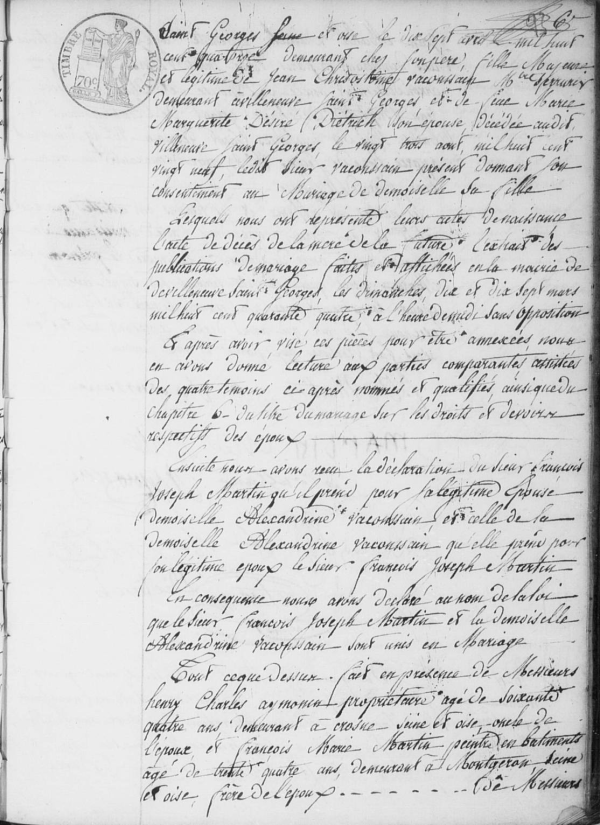 TIMBRE ROYAL
70c
Saint Georges Seine et oise le dix sept avril mil huit
cent quatorze demeurant chez son père, fille Majeure
et légitime de Jean Chrisostome vacoussain Mtre Serrurier
demeurant à villeneuve Saint Georges et de feue Marie
Marguerite Désiré Diétrich son épouse décédée audit
villeneuve Saint Georges le vingt trois aout, mil huit cent
vingt neuf, ledit sieur vacoussain présent donnant son
consentement au Mariage de demoiselle sa fille
Lesquels nous ont représenté leurs actes de naissance
l'acte de décès de la mère de la future, l'extrait des
publications de mariage faites et affichées en la mairie de
de villeneuve Saint Georges, les dimanches, dix et dix sept mars
mil huit cent quarante quatre, à l'heure de midi sans opposition
Et après avoir visé ces pièces pour être annexées, nous
en avons donné lecture aux parties comparantes assistées
des quatre témoins ci-après nommés et qualifiés, ainsi que du
chapitre 6 du titre du mariage sur les droits et devoirs
respectifs des époux
Ensuite nous avons reçu la déclaration du sieur françois
Joseph Martin qu'il prend pour sa légitime Epouse
demoiselle Alexandrine vacoussain, et celle de la
demoiselle Alexandrine vacoussain qu'elle prend pour
son légitime époux le sieur françois Joseph Martin
En conséquence nous avons déclaré au nom de la loi
que le sieur françois Joseph Martin et la demoiselle
Alexandrine vacoussain sont unis en Mariage
Tout ce que dessus fait en présence de Messieurs
henry Charles aymonin propriétaire agé de soixante
quatre ans, demeurant à crosne seine et oise, oncle de
l'époux et françois Marie Martin peintre en batiments
agé de trente quatre ans, demeurant à Montgeron Seine
et oise, frère de l'époux - - - - - - - - de Messieurs